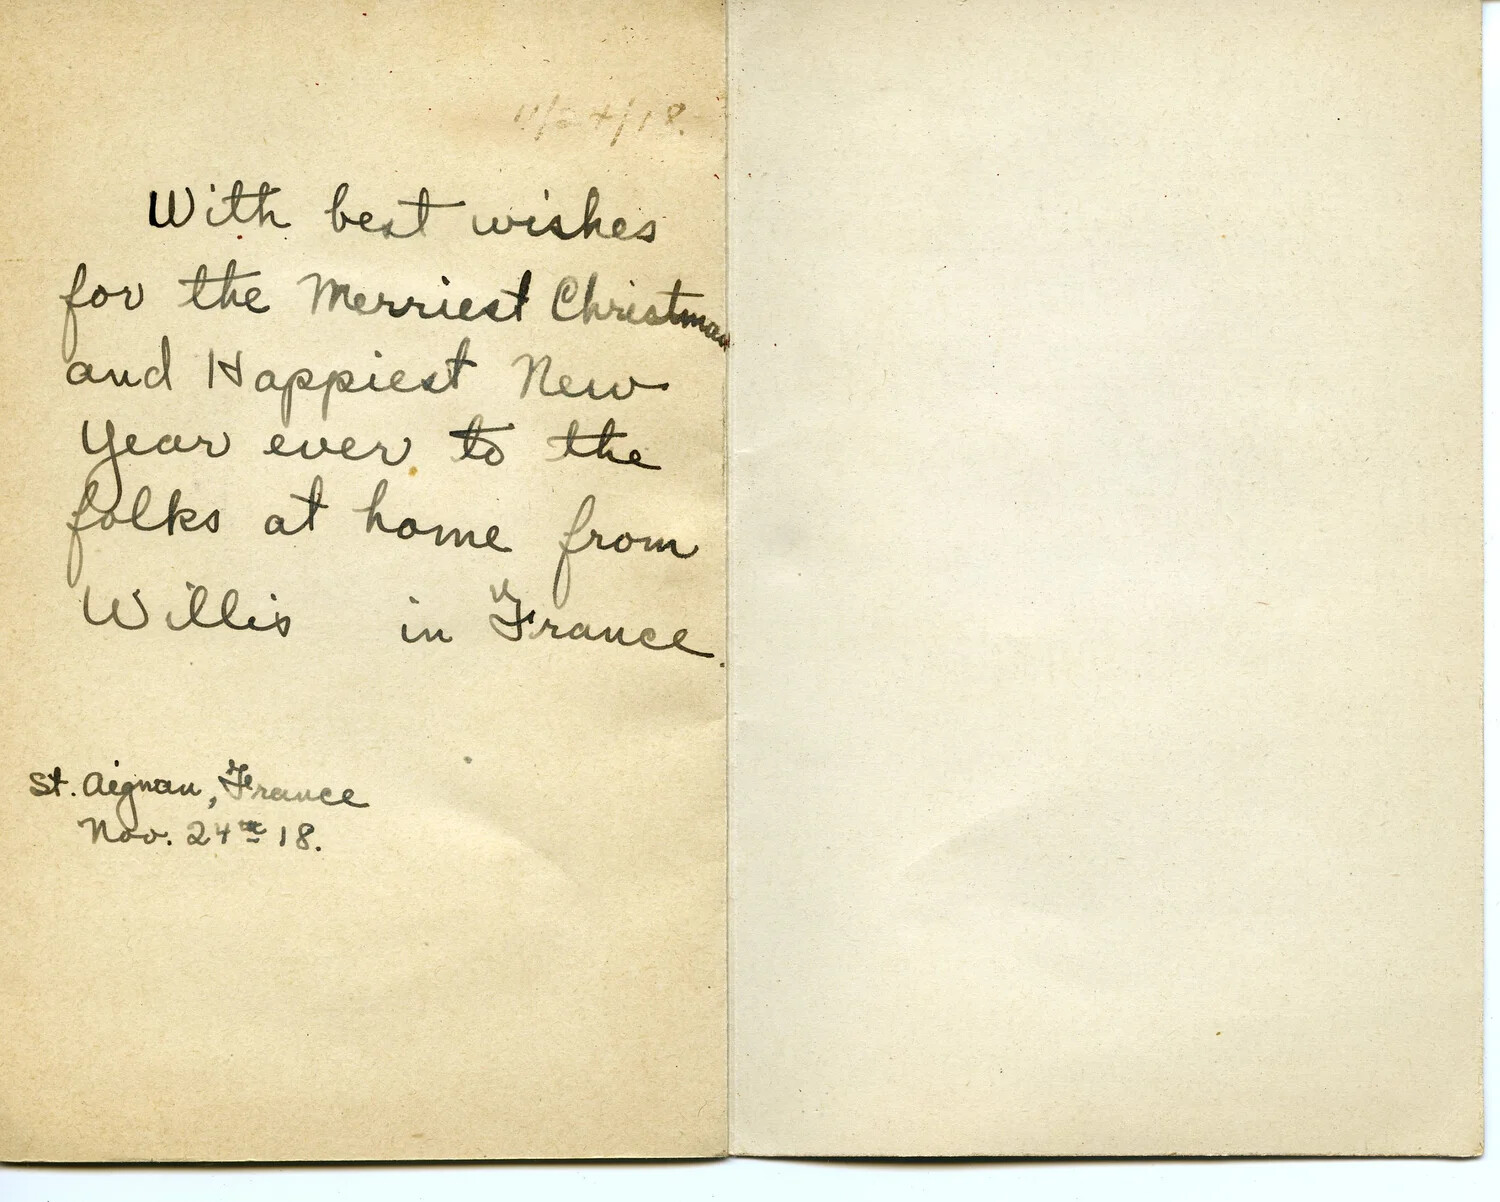 11/24/18.
With best wishes
for the Merriest Christmas
and Happiest New
Year ever to the
folks at home from
Willis in France.
St. Aignan, France
Nov. 24th 18.